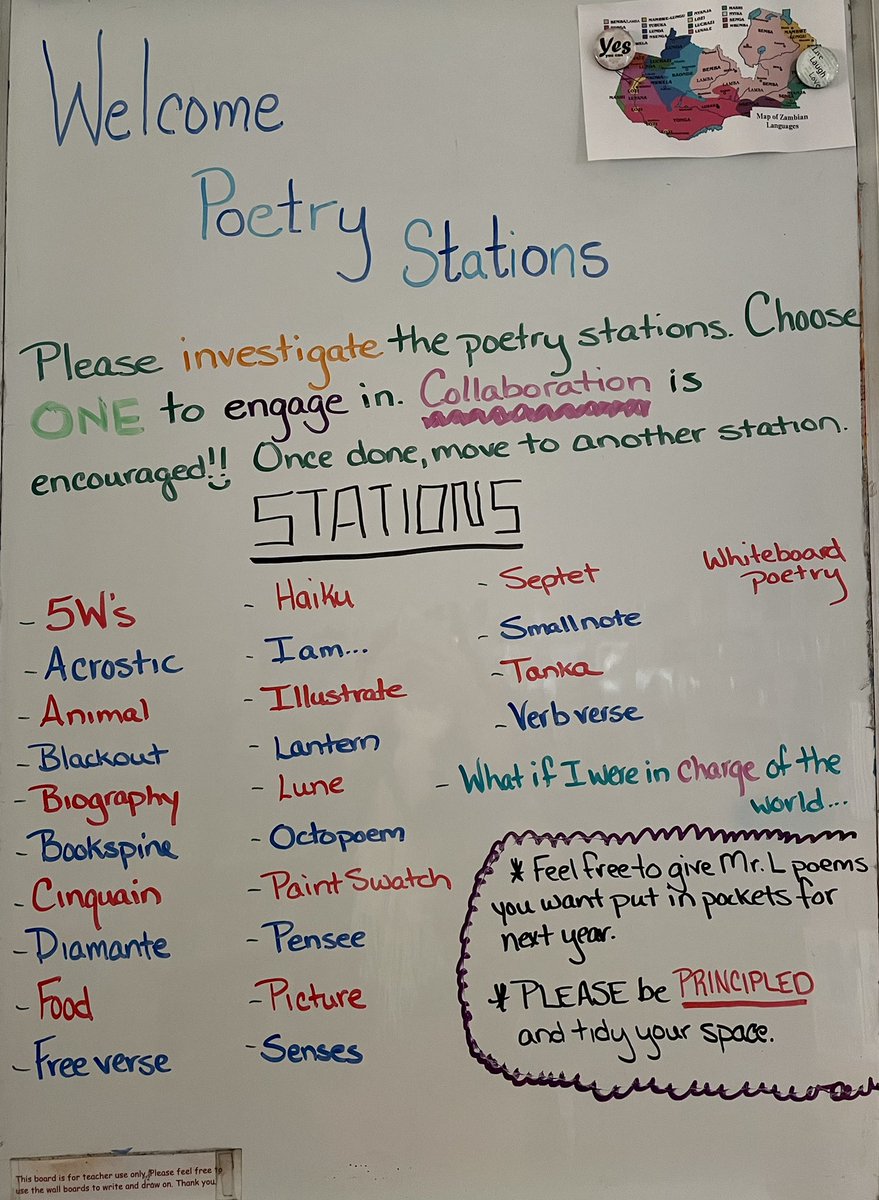 Welcome
Poetry
Stations
Yes
Live
Laugh
Love
Map of Zambian
Languages
Please investigate the poetry stations. Choose
ONE to engage in. Collaboration is
encouraged!! Once done, move to another station.
STATIONS
- 5W's
- Acrostic
- Animal
- Blackout
- Biography
- Bookspine
- Cinquain
- Diamante
- Food
- Free verse
- Haiku
- I am...
- Illustrate
- Lantern
- Lune
- Octopoem
- Paint Swatch
- Pensee
- Picture
- Senses
- Septet
- Smallnote
- Tanka
- Verb verse
- What if I were in charge of the
world...
Whiteboard
poetry
* Feel free to give Mr. L poems
you want put in pockets for
next year.
* PLEASE be PRINCIPLED
and tidy your space.
This board is for teacher use only. Please feel free to
use the wall boards to write and draw on. Thank you.